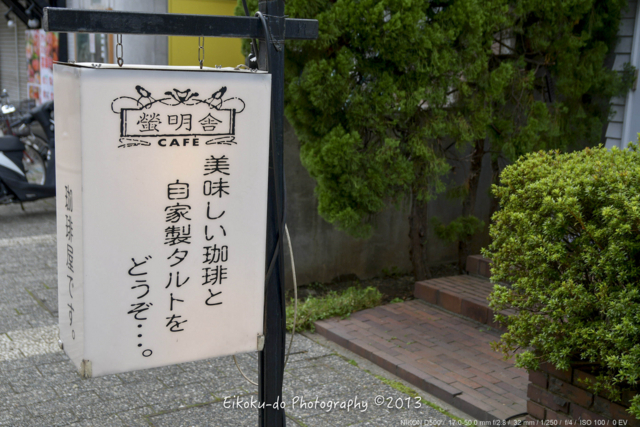 螢明舎
CAFÉ
美味しい珈琲と
自家製タルトを
どうぞ…。
Eikoku-do Photography ©2013
Nikon D500 17.0-50.0 mm f/2.8 32 mm 1/250 f/4 ISO 100 0 EV